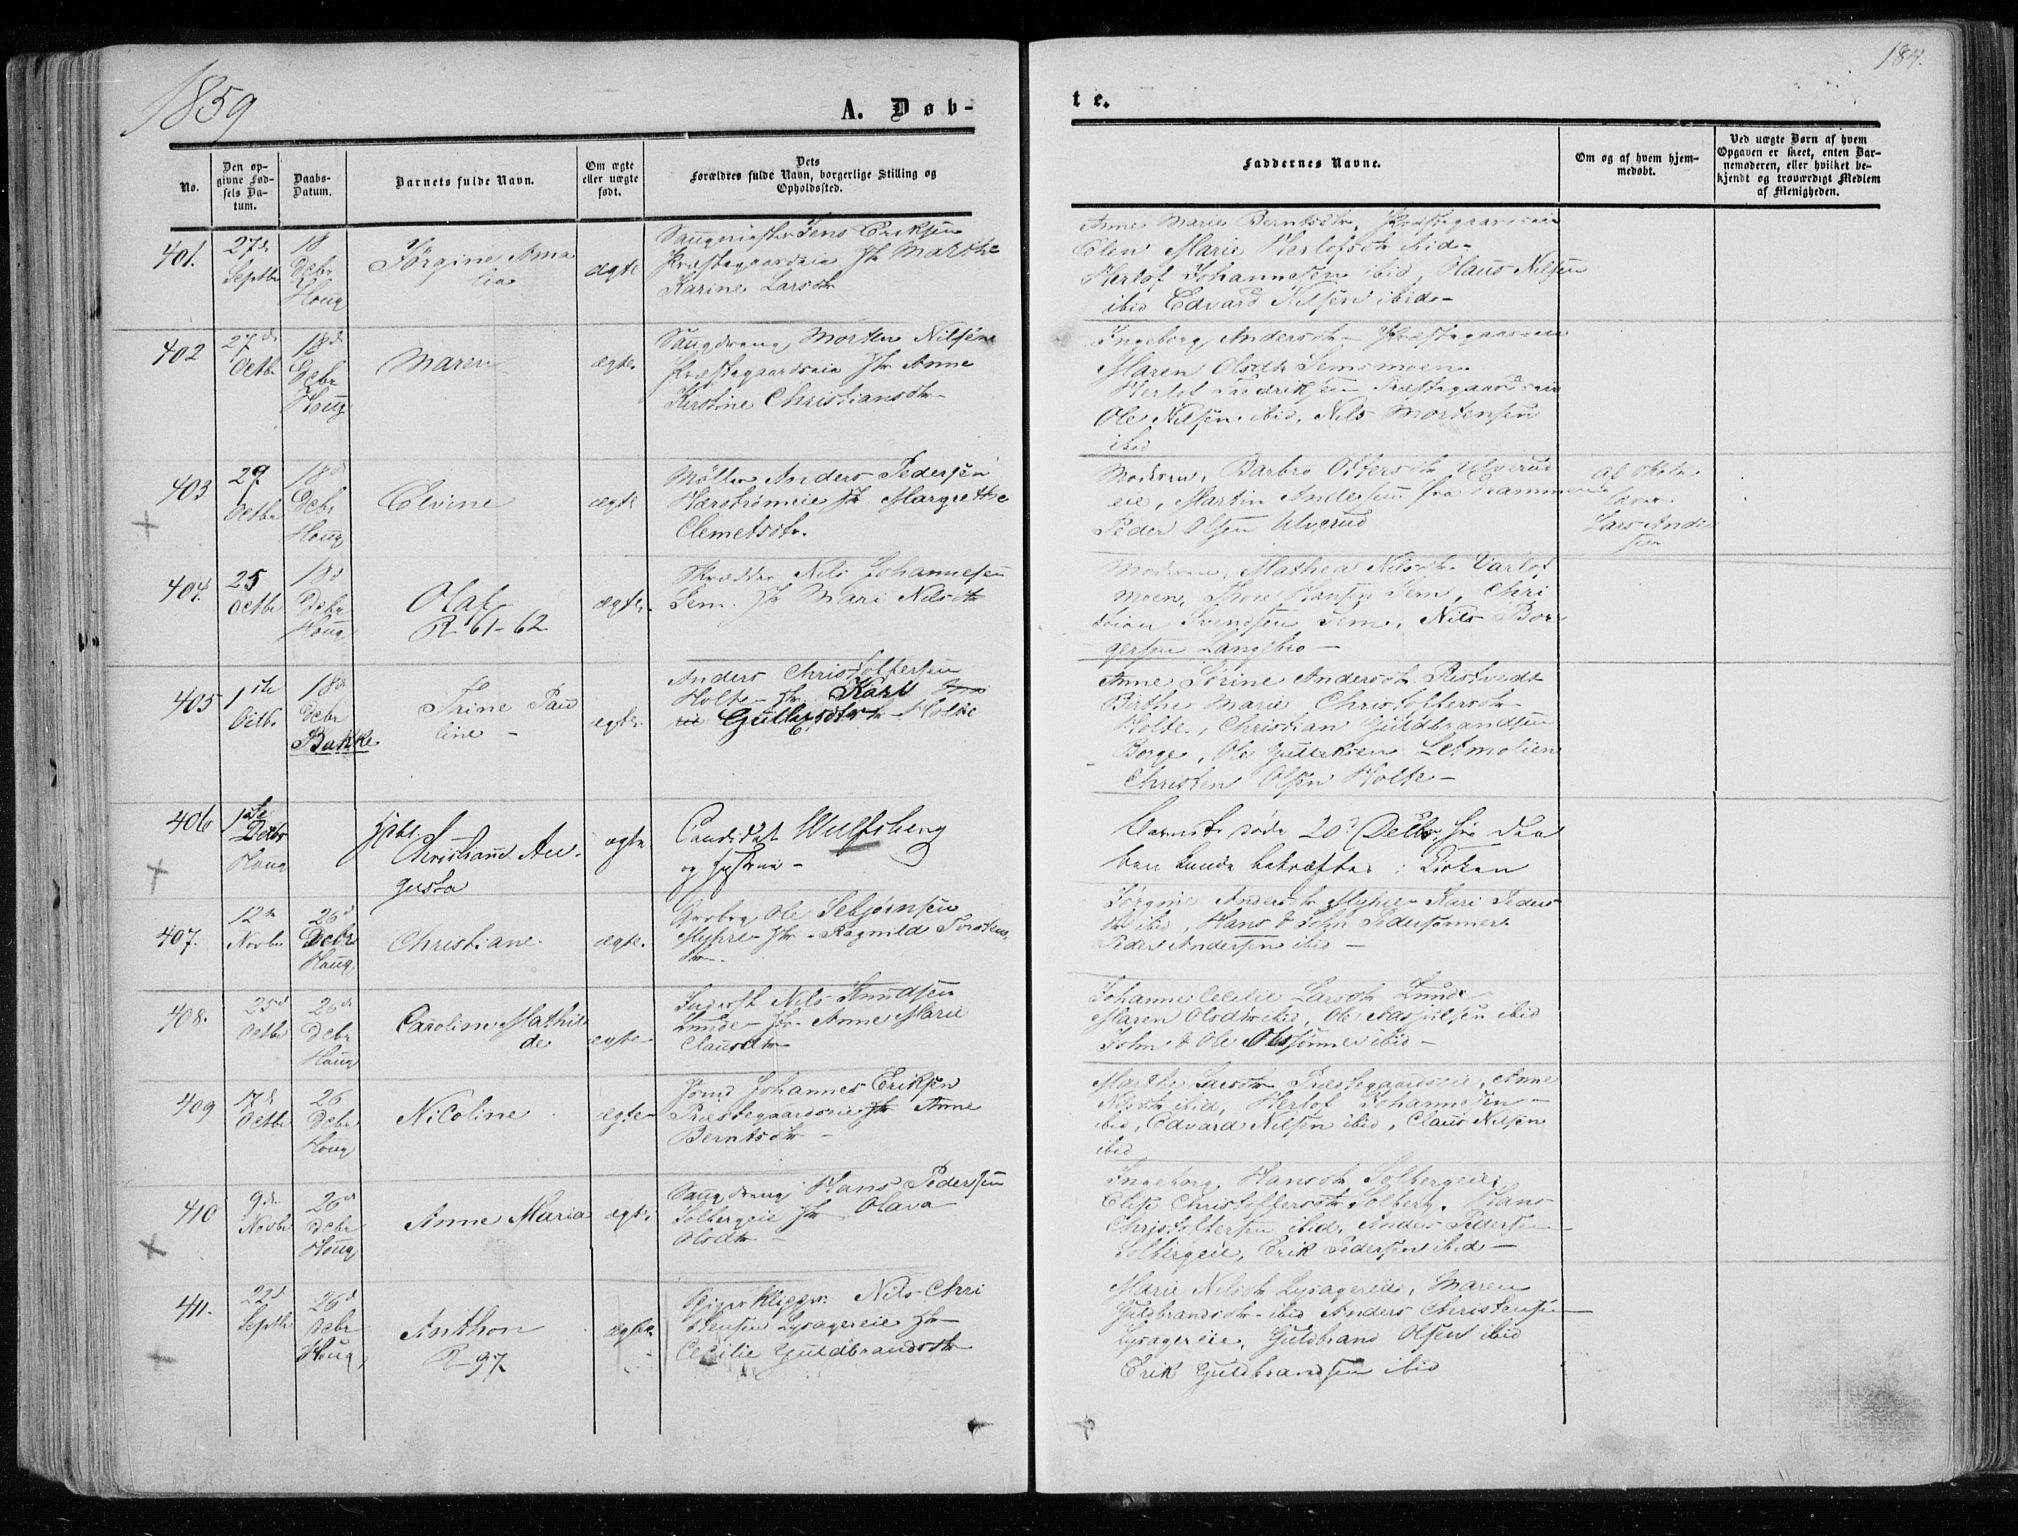 1859
A. Døb-
te.
184.
No.
Den op-
givne Fød-
sels Da-
tum.
Daabs-
Datum.
Barnets fulde Navn.
Om ægte
eller uægte
født.
Dets
Forældres fulde Navn, borgerlige Stilling og
Opholdssted.
Faddernes Navne.
Om og af hvem hjem-
medøbt.
Ved uægte Børn af hvem
Opgaven er skeet, enten Bar-
nemoderen, eller hvilket be-
kjendt og troværdigt Medlem
af Menigheden.
401.
27de
Septbr
18
Debr
Houg
Jørgine Ama
lia
ægte
Saugmester Jens Eriksen
Præstegaardseie Hr Marthe
Karine Larsdtr
Anne Marie Berntsdtr, Præstegaardseie
Elen Marie Herlofsdtr ibid-
Herlof Johannesen ibid, Claus Nilsen
ibid Edvard Nilsen ibid-
402
27de
Octbr
18de
Debr
Houg
Maren
ægte.
Saugdreng Morten Nilsen
Præstegaardseie Hr Anne
Kirstine Christiansdtr-
Ingeborg Andersdtr- Præstegaardseie
Maren Olsdtr Semsmoen.
Herlof Fredriksen Præstegaardseie
Ole Nilsen ibid, Nils Mortensen
ibid
403
29
Octbr
18de
Debr
Houg
Elvine
ægte
Møller Anders Pedersen
Hærstrømeie Hr Margrethe
Clemetsdtr.
Moderen, Barbro Ottersdtr Ulverud
eie, Martin Andersen fra Drammen
Peder Olsen Ulverud
Lars Ander
sen
404.
25
Octbr
18d
Debr
Houg
Olaf
R 61-62
ægte.
Skrædder Nils Johannesen
Sem. Hr Mari Nilsdtr
Moderen, Mathea Nilsdtr Varlof
moen, Thore Hansen Sem, Chri
stian Svendsen Sem, Nils Bor
gersen Langebro-
405
1ste
Octbr
18de
Debr
Bakke
Trine Pau
line-
ægte.
Anders Christoffersen
Holte- Hr Kari
Gulliksdtr- Holte
Anne Sørine Andersdtr Ristvedt
Birthe Marie Christoffersdtr
Holte, Christian Guldbrandsen
Borge, Ole Gulliksen Lesmolien
Christen Olsen Holte-
406
1ste
Octbr
Houg
Christiane Au-
gusta
ægte
Candidat Wulfsberg
og Hustrue-
Barnet døde 20d Debr, før Daa
ben kunde bekræftes i Kirken
407.
12te
Novbr
26d
Debr
Houg
Christiane-
ægte.
Grbrg Ole Sebjørnsen
Myhre- Hr- Ragnild Torstens
dtr-
Jørgine Andersdtr Myhre Kari Peders
dtr ibid, Hans & John Pedersønner
Peder Andersen ibid-
408.
25d
Octbr
26d
Debr
Houg
Caroline Mathil
de
ægte-
Inderst Nils Knudsen
Lunde- Hr- Anne Marie
Clausdtr
Johanne Cecilie Larsdtr Lunde
Maren Olsdtr ibid, Ole Aasjulsen ibid
John & Ole Olssønner ibid-
409
17de
Octbr
26
Debr
Houg
Nicoline
ægte-
Jomd Johannes Eriksen
Præstegaardseie Hr Anne
Berntsdtr-
Marthe Larsdtr Præstegaardseie, Anne
Nilsdtr ibid, Herlof Johannesen-
ibid, Edvard Nilsen ibid, Claus Nilsen
ibid
410
9de
Novbr
26d
Debr
Houg
Anne Maria
ægte
Saugdreng Hans Pedersen
Solbergeie Hr Olava
Olsdtr-
Ingeborg Hansdtr Solbergeie,
Elise Christoffersdtr Solberg, Hans
Christoffersen ibid, Anders Pedersen-
Solbergeie, Erik Pedersen ibid-
411.
22d
Septbr
26d
Debr
Houg
Anthon
R 97
ægte
Spigerklipper Nils Chri
stensen Lysagereie Hr-
Cecilie Guldbrandsdtr
Marie Nilsdtr Lysagereie, Maren
Guldbrandsdtr- ibid Anders Christensen
Lysagereie, Guldbrand Olsen ibid
Erik Guldbrandsen ibid